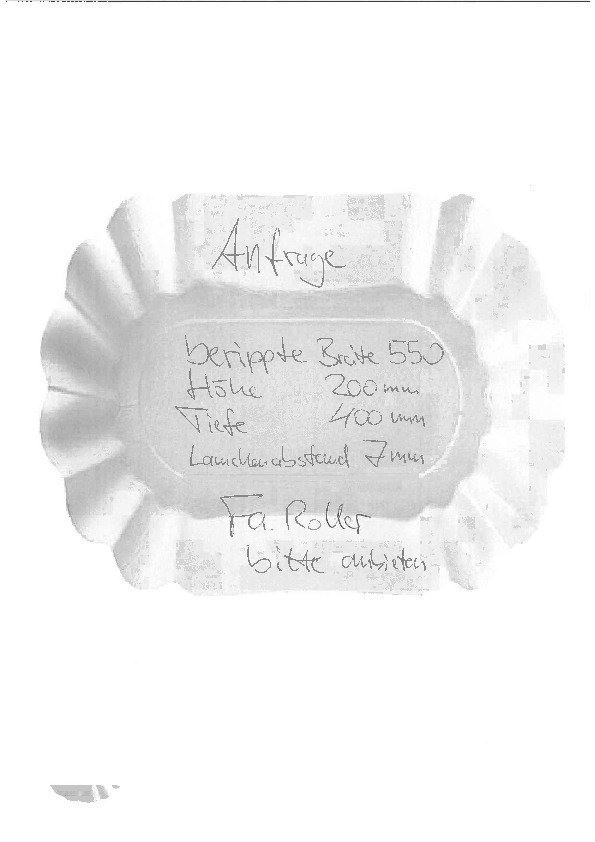 Anfrage
berippte Breite 550
Höhe 200 mm
Tiefe 400 mm
Lamellenabstand 7 mm
Fa. Roller
bitte anbieten